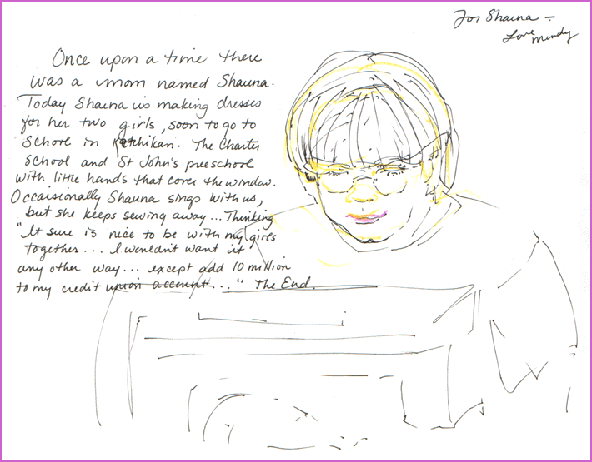 For Shauna -
Love Mindy
Once upon a time there
was a mom named Shauna.
Today Shauna is making dresses
for her two girls, soon to go to
School in Ketchikan. The Charter
School and St John's preschool
with little hands that cover the window.
Occaisionally Shauna sings with us,
but she keeps sewing away... Thinking
"It sure is nice to be with my girls
together... I wouldn't want it
any other way... except add 10 million
to my credit union account..." The End.